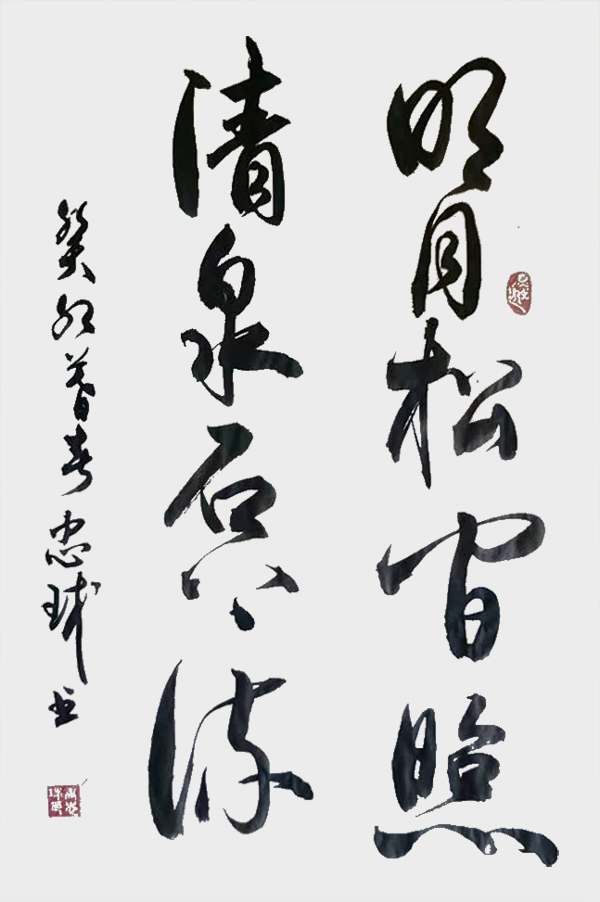 明月松间照
清泉石上流
癸卯暮春忠球书